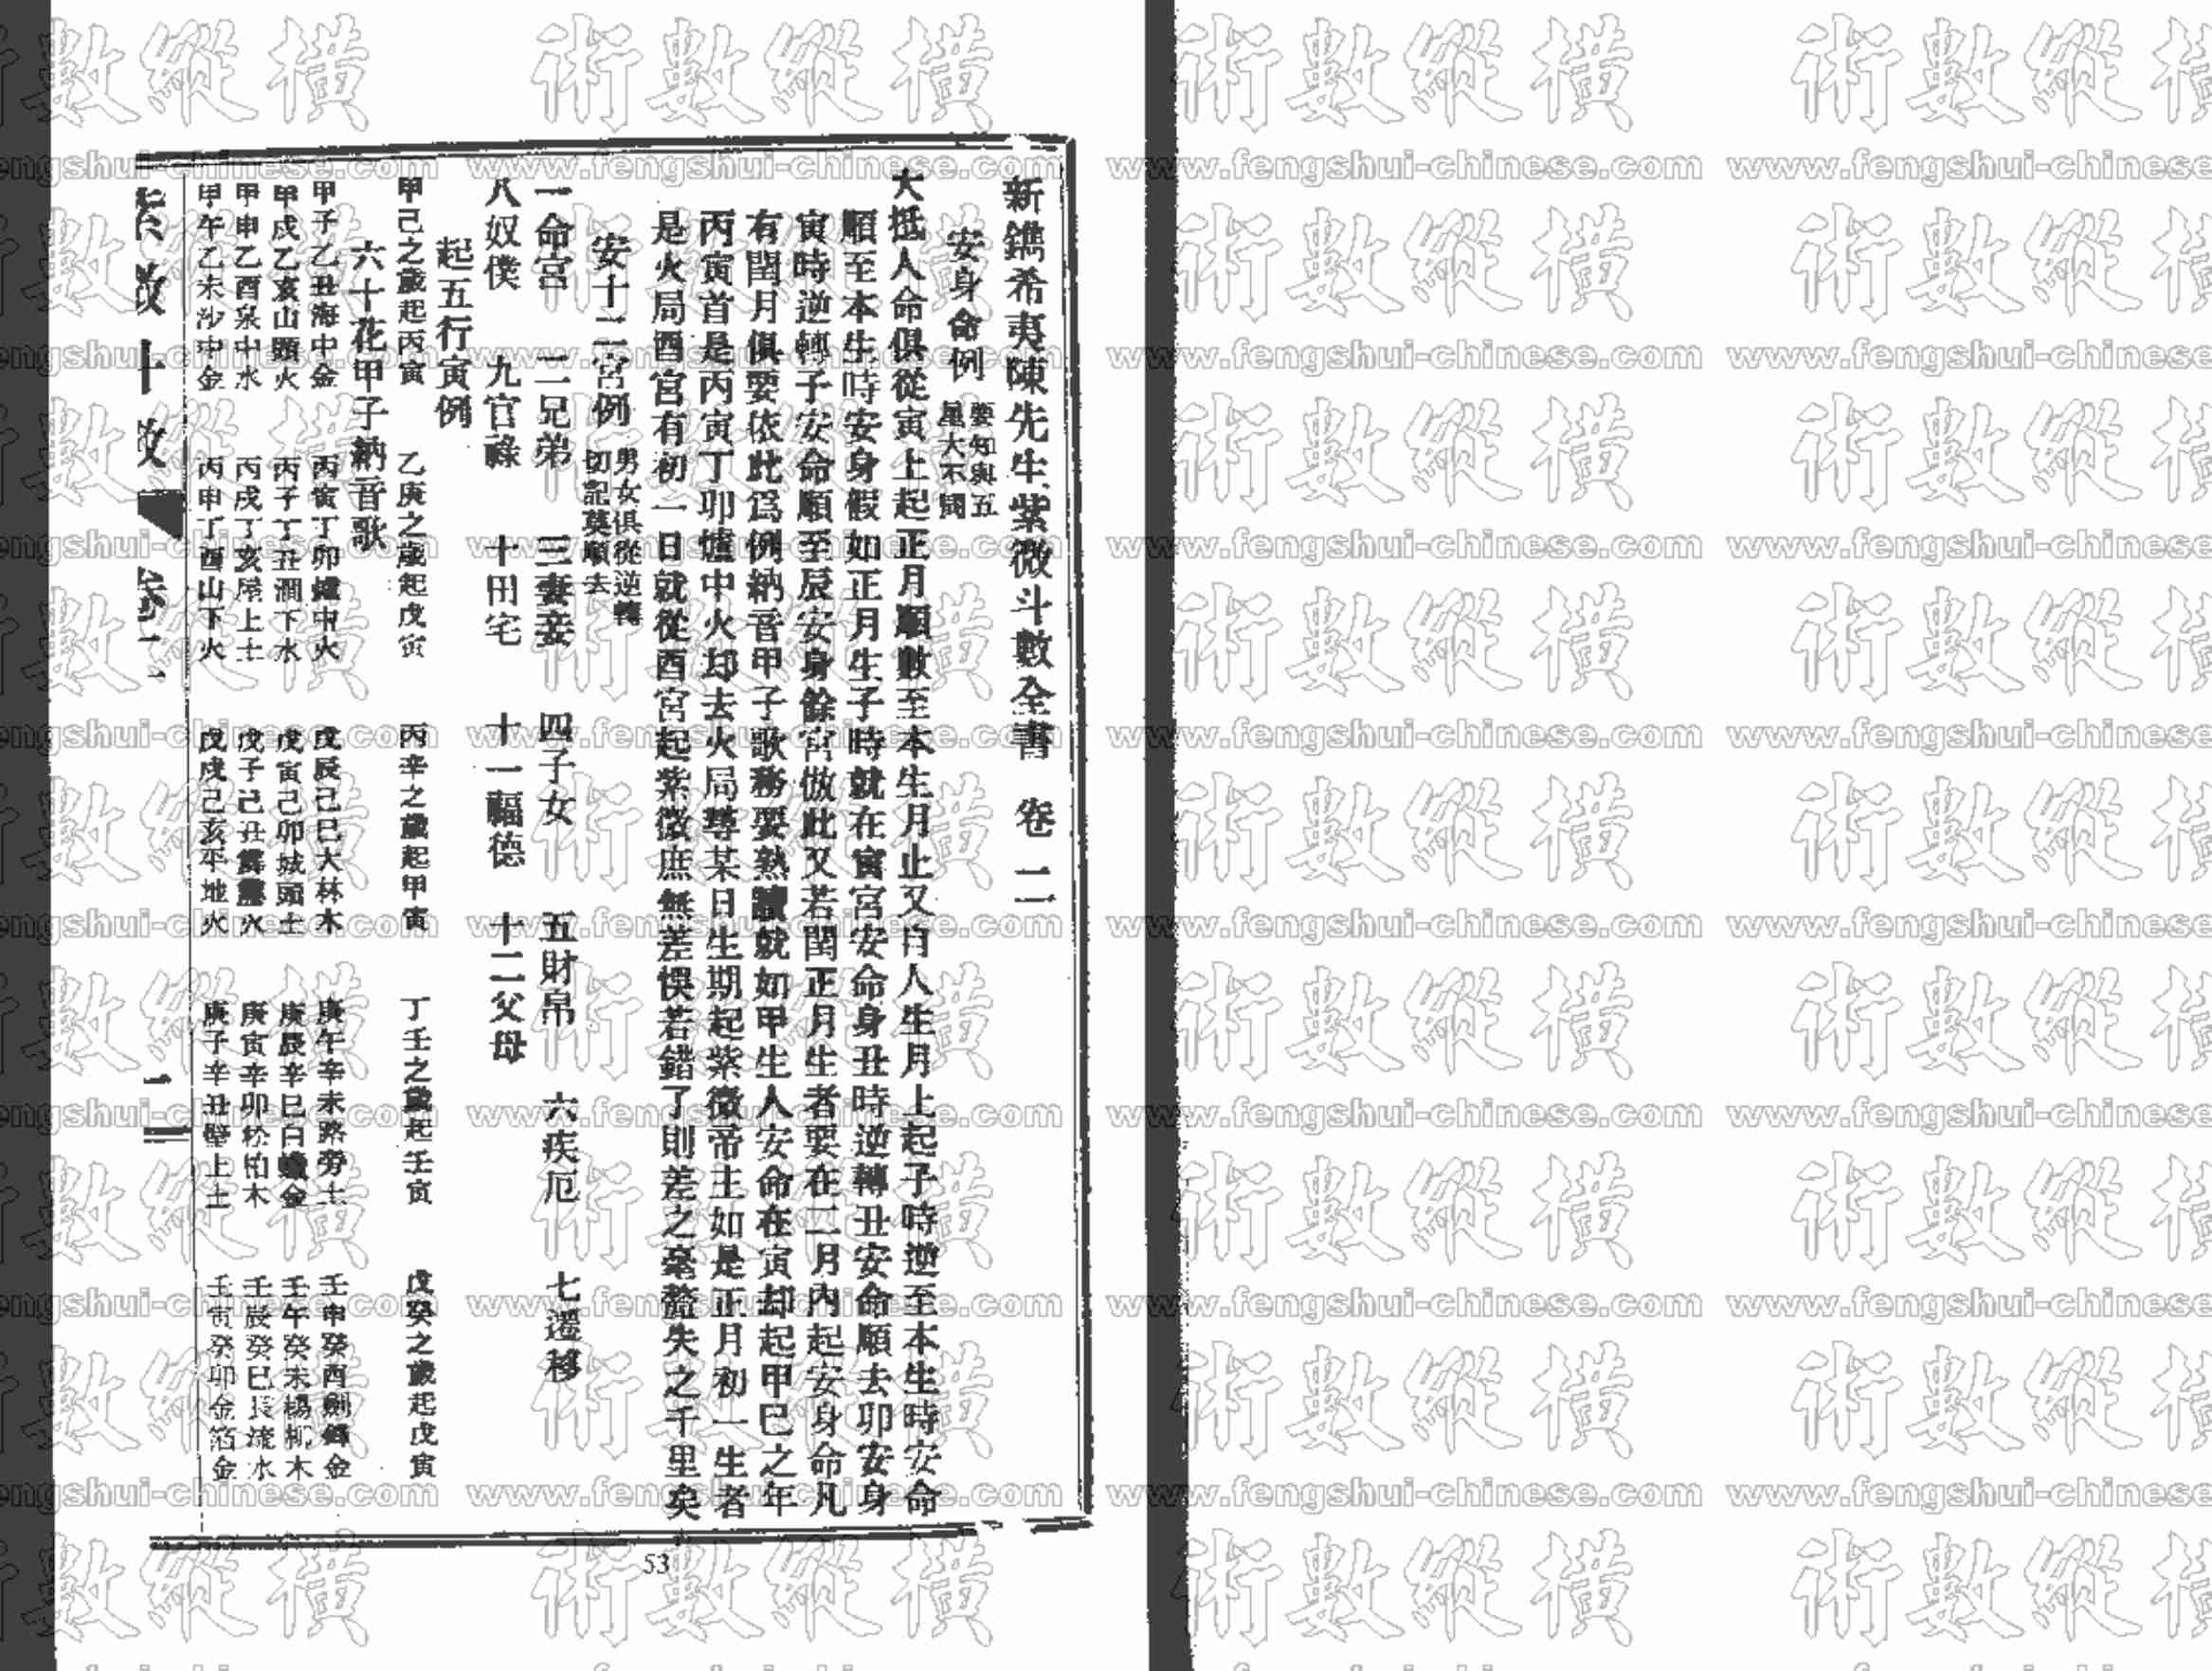 新鐫希夷陳先生紫微斗數全書 卷二
安身命例 要知與五星大不同
大抵人命俱從寅上起正月順數至本生月止又自人生月上起子時逆至本生時安命
順至本生時安身假如正月生子時就在寅宮安命身丑時逆轉丑安命順去卯安身
寅時逆轉子安命順至辰安身餘宮倣此又若閏正月生者要在二月內起安身命凡
有閏月俱要依此爲例納音甲子歌務要熟讀就如甲生人安命在寅却起甲巳之年
丙寅首是丙寅丁卯爐中火却去火局尋某日生期起紫微帝主如是正月初一生者
是火局酉宮有初一日就從酉宮起紫微庶無差悞若錯了則差之毫釐失之千里矣
安十二宮例 男女俱從逆轉切記莫順去
一命宮 二兄弟 三妻妾 四子女 五財帛 六疾厄 七遷移
八奴僕 九官祿 十田宅 十一福德 十二父母
起五行寅例
甲己之歲起丙寅 乙庚之歲起戊寅 丙辛之歲起甲寅 丁壬之歲起壬寅 戊癸之歲起戊寅
六十花甲子納音歌
甲子乙丑海中金 丙寅丁卯爐中火 戊辰己巳大林木 庚午辛未路旁土 壬申癸酉劍鋒金
甲戌乙亥山頭火 丙子丁丑澗下水 戊寅己卯城頭土 庚辰辛巳白蠟金 壬午癸未楊柳木
甲申乙酉泉中水 丙戌丁亥屋上土 戊子己丑霹靂火 庚寅辛卯松柏木 壬辰癸巳長流水
甲午乙未沙中金 丙申丁酉山下火 戊戌己亥平地火 庚子辛丑壁上土 壬寅癸卯金箔金
紫微斗數 卷二 二
53
術數縱橫
www.fengshui-chinese.com